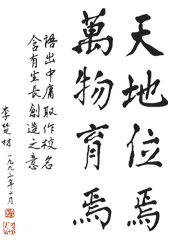 天地位焉
萬物育焉
語出中庸取作校名
含有生長創造之意
李楚材一九九三年十月